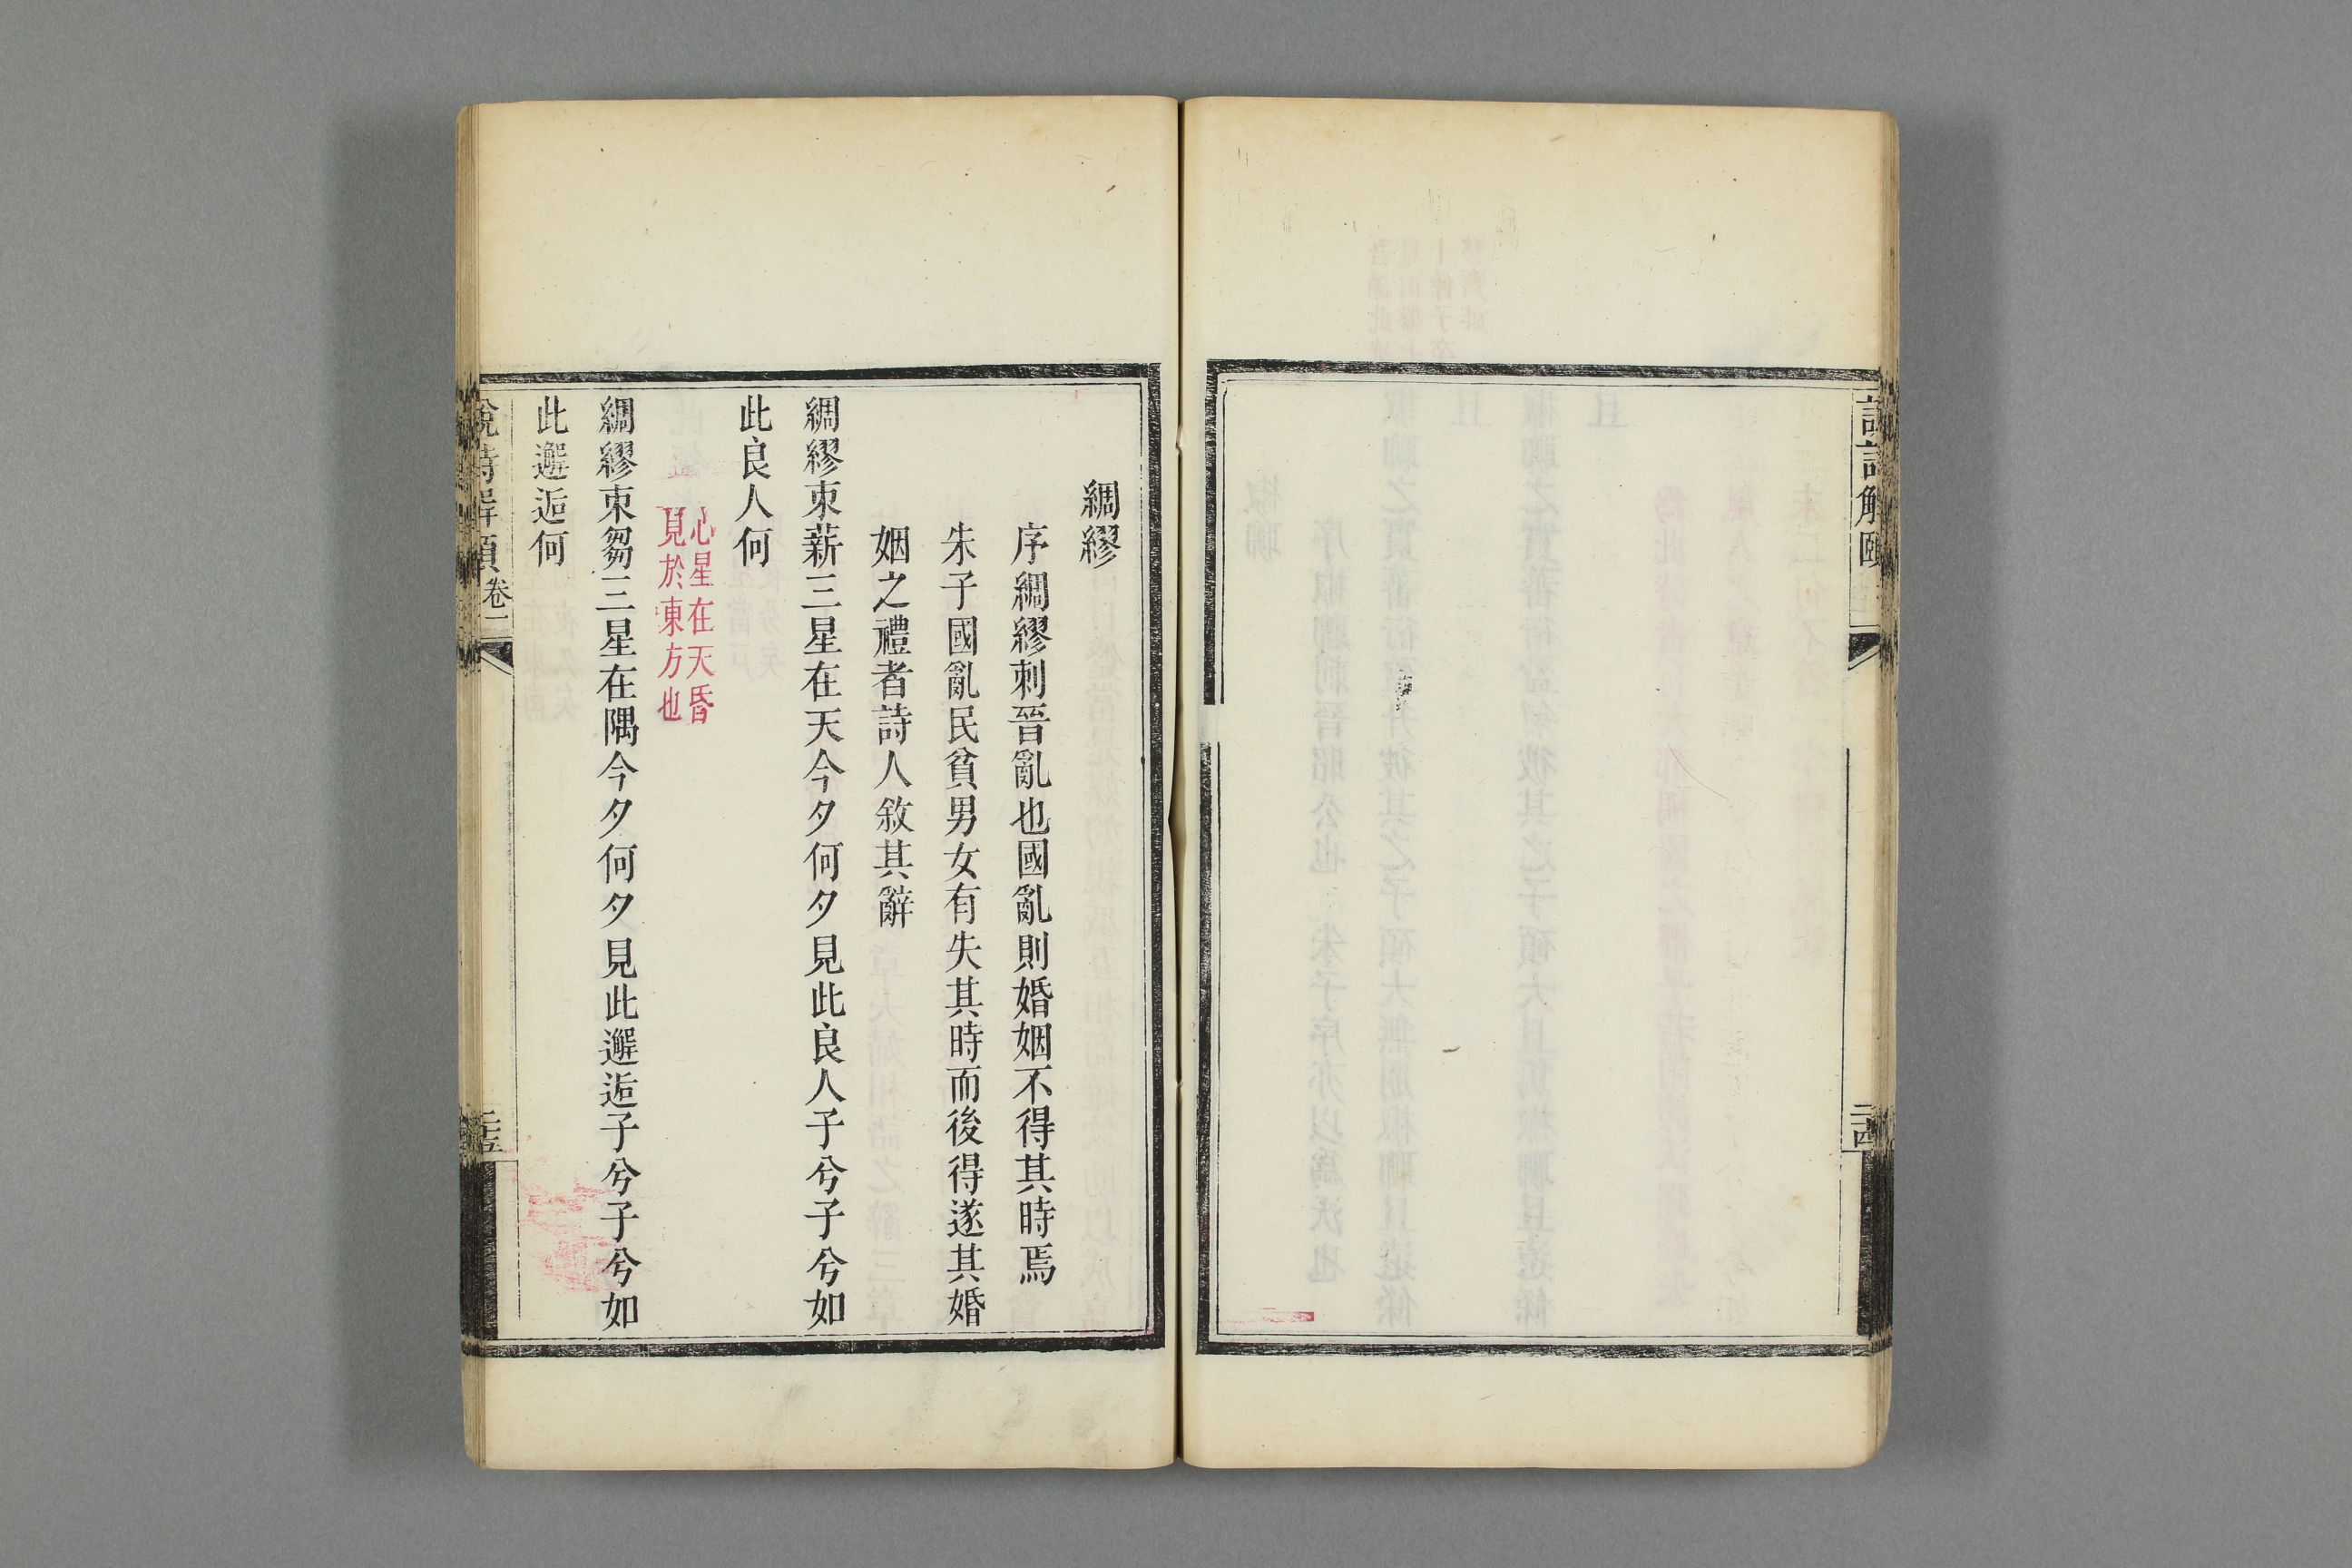 綢繆
序綢繆刺晉亂也國亂則婚姻不得其時焉
朱子國亂民貧男女有失其時而後得遂其婚
姻之禮者詩人敘其辭
綢繆束薪三星在天今夕何夕見此良人子兮子兮如
此良人何
心星在天昏
見於東方也
綢繆束芻三星在隅今夕何夕見此邂逅子兮子兮如
此邂逅何
說詩解頤
卷一